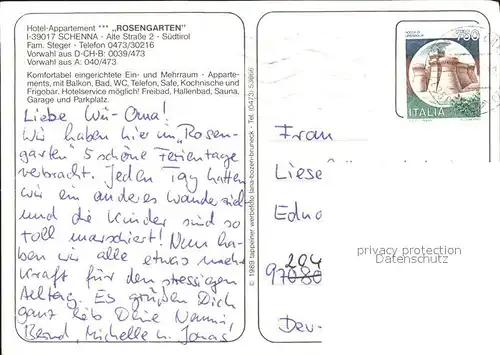 Hotel-Appartement *** „ROSENGARTEN"
I-39017 SCHENNA · Alte Straße 2 · Südtirol
Fam. Steger · Telefon 0473/30216
Vorwahl aus D-CH-B: 0039/473
Vorwahl aus A: 040/473
Komfortabel eingerichtete Ein- und Mehrraum - Apparte-
ments, mit Balkon, Bad, WC, Telefon, Safe, Kochnische und
Frigobar. Hotelservice möglich! Freibad, Hallenbad, Sauna,
Garage und Parkplatz.
Liebe Wü-Oma!
Wir haben hier im „Rosen-
garten" 5 schöne Ferientage
verbracht. Jeden Tag hatten
wir ein anderes Wanderziel
und die Kinder sind so
toll marschiert! Nun ha-
ben wir alle etwas mehr
Kraft für den stressigen
Alltag. Es grüßen Dich
ganz lieb Deine Nanni,
Bernd, Michelle u. Jonas
© 1989 tappeiner werbefoto lana-bozen-bruneck - Tel. (0473) 53666
750
ITALIA
Frau
Liese
Edno
204
97080
Deu-
privacy protection
Datenschutz